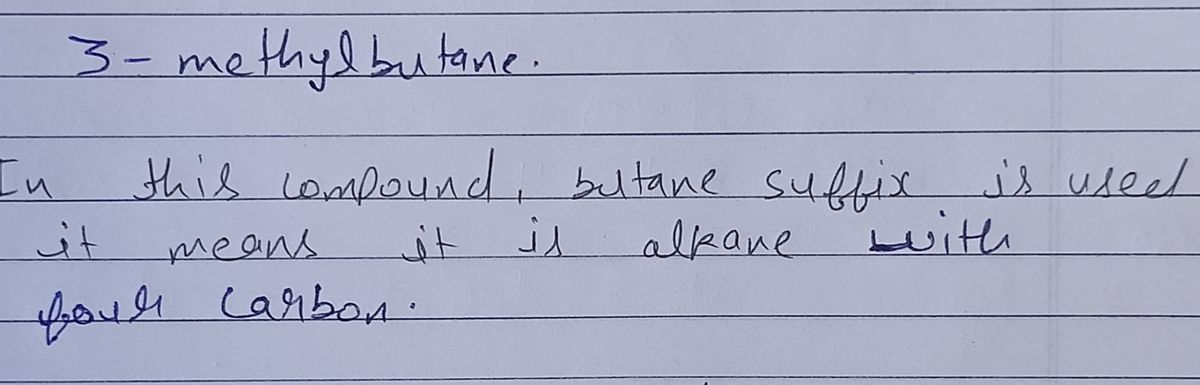 3- methylbutane.
In this compound, butane suffix is used
it means it is alkane with
four carbon.